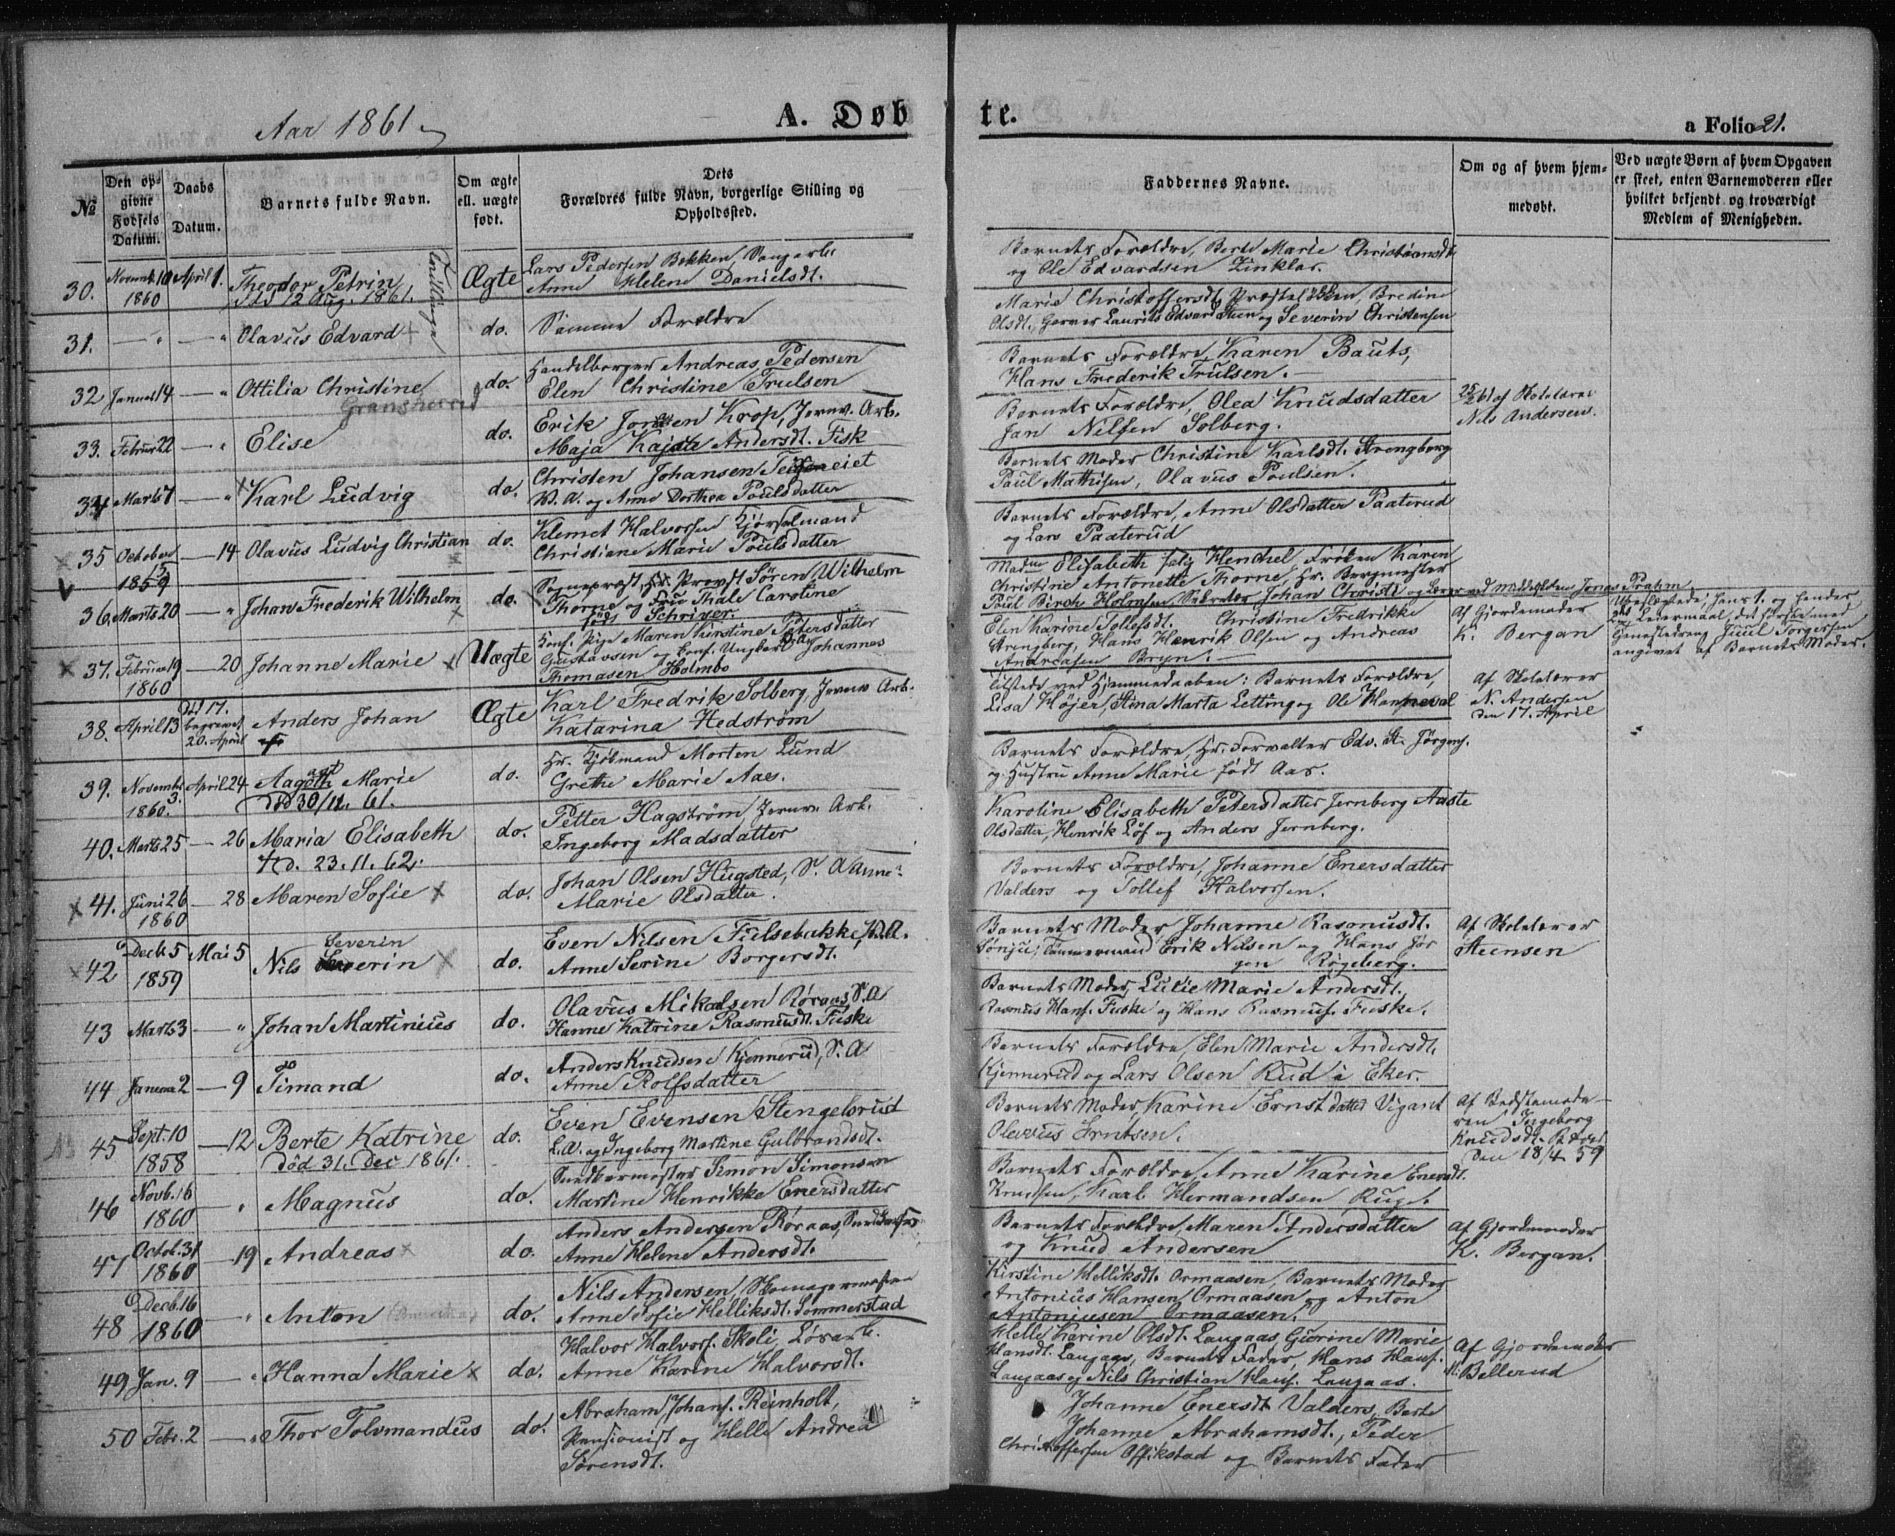 Aar 1861
A. Døbte.
a Folio 21.
№
Den opgivne Fødsels Datum.
Daabs Datum.
Barnets fulde Navn.
Om ægte ell. uægte født.
Dets Forældres fulde Navn, borgerlige Stilling og Opholdssted.
Faddernes Navne.
Om og af hvem hjemmedøbt.
Ved uægte Børn af hvem Opgaven er skeet, enten Barnemoderen eller hvilket bekjendt og troværdigt Medlem af Menigheden.
30. Novemb. 10 1860 April 1. Theodor Petrin Tvillinger Ægte Lars Pedersen Bekken, Saugarb.
død 12 Aug. 1861. Anne Helene Danielsdt.
Barnets Forældre, Berte Marie Christiansdt
og Ole Edvardsen Zinklar.
31. — " — " Olavus Edvard do. Samme Forældre
Marie Christoffersdt Præstel, Bredine
Olsdt., Garver Laurits Edvard Steen og Severin Christensen
32 Januar 14 — " Ottilia Christine do. Handelborger Andreas Pedersen
Elen Christine Trulsen
Barnets Forældre, Karen Bauts,
Hans Frederik Trulsen. —
Gransherred
33. Februar 22 — " Elise do. Erik Jonsen Krop, Jernv. Arb.
Maja Kajsa Andersdt. Fisk
Barnets Forældre, Olea Knudsdatter
Jan Nilsen Solberg.
25/2 61 af Skolelærer
Nils Andersen.
34 Marts 7 — " Karl Ludvig do. Christen Johansen Teigeneiet
B. A. og Anne Dorthea Poulsdatter
Barnets Moder Christine Karlsdt. Strengberg
Paul Mathisen, Olavus Poulsen.
35 October 15 1859 — 14 Olavus Ludvig Christian do. Klemet Halvorsen Kjørselmand
Christiane Marie Poulsdatter
Barnets Forældre, Anne Olsdatter Paaterud
og Lars Paaterud
36. Marts 20 — " Johan Frederik Wilhelm do. Sognepræst, Hr. Provst Søren Wilhelm
Thorne og Fru Thale Caroline
født Schriver.
Madme Elisabeth sæl. Henchel, Frøken Karen
Christine Antonette Thorne, Hr. Bergmester
Poul Birch Holmsen, Sekretær Johan Christi og Lærer ved Middelskolen Jonas Prahm
37. Februar 19 1860 — 20 Johanne Marie Uægte Konf. Pige Maren Kirstine Petersdatter
Gustavsen og Konf. Ungkarl Johannes
Thomasen Holmbo
Elen Karine Tollefsdt. Christine Fredrikke
Strengberg, Hans Henrik Olsen og Andreas
Andreasen Bryn. —
Af Gjordemoder
K. Bergan
Ubeslægtede, hans 1. og hendes
Leiermaal, det første med
Juul Torgersen
angivet af Barnets Moder.
38. April 13 død 17. begravet 20. April Anders Johan Ægte Karl Fredrik Solberg, Jernv. Arb.
Katarina Hedström
Tilstede ved Hjemmedaaben: Barnets Forældre,
Lisa Höjer, Stina Marta Letting og Ole Hanneval
Af Skolelærer
N. Andersen
den 17. April
39. Novemb. 3. 1860. April 24 Aagot Marie do. Hr. Kjøbmand Morten Lund
død 30/11. 61. Grethe Marie Aaes.
Barnets Forældre, Hr. Forvalter Edv. St. Jørgens.
og Hustru Anne Marie født Aas.
40. Marts 25 — 26 Maria Elisabeth do. Petter Hagström, Jernv. Arb.
d. 23. 11. 62. Ingeborg Madsdatter
Karoline Elisabeth Petersdatter Jernberg Aaste
Olsdatter, Henrik Löf og Anders Jernberg.
41. Juni 26 1860 — 28 Maren Sofie do. Johan Olsen Hugsted, S. A Anne
Marie Olsdatter.
Barnets Forældre, Johanne Enersdatter
Valders og Tollef Halvorsen.
42 Decb. 5 1859 Mai 5 Nils Severin do. Even Nilsen Fulsebakke, B.A.
Anne Serine Borgersdt.
Barnets Moder Johanne Rasmusdt.
Sønju, Tømmermand Erik Nilsen og Hans Jør
gen Røgeberg.
Af Skolelærer
Steensen
43 Marts 3 — " Johan Martinius do. Olavus Mikalsen Røraas, S.A
Hanne Katrine Rasmusdt. Fuske
Barnets Moder Lulie Marie Andersdt.
Rasmus Hans. Fuske og Hans Rasmus. Fuske.
44 Januar 2 — 9 Timand do. Anders Knudsen Kjennerud, S. A
Anne Rolfsdatter
Barnets Forældre, Elen Marie Andersdt.
Kjennerud og Lars Olsen Rud i Eker.
45 Sept. 10 1858 — 12 Berte Katrine do. Even Evensen Stengelsrud
død 31. Dec 1861. L.A. og Ingeborg Martine Gulbrandsdt.
Barnets Moder, Karine Ernstdatter Vigant
Olavus Erntsen.
Af Bedstemode-
ren Ingeborg
Knudsdt.
den 18/4 59
46 Novb. 16 1860 — " Magnus do. Simon Simonsen
Martine Henrikke Enersdatter
Barnets Forældre, Anne Karine Enersdt.
Knudsen, Karl Hermandsen Ruge.
47 Octob. 31 1860 — 19 Andreas do. Anders Andersen Røraas,
Anne Helene Andersdt.
Barnets Forældre, Maren Andersdatter
og Knud Andersen
Af Gjordemoder
K. Bergan.
48 Decb. 16 1860 — " Anton do. Nils Andersen, Skomagermester
Anne Sofie Helliksdt. Sommerstad
Kirstine Helliksdt. Ormaasen, Barnets Moder
Antonius Hansen Ormaasen og Anton
Antoniusen Ormaasen.
49 Jan. 9 — " Hanna Marie do. Halvor Halvors. Skoli, Løsarb.
Anne Karine Halvorsdt.
Helle Karine Olsdt. Laugaas, Gurine Marie
Hansdt. Laugaas, Barnets Fader, Hans Hans.
Laugaas og Nils Christian Hans. Laugaas.
Af Gjordemoder
M. Bellerud
50 Febr. 2 — " Thor Tolvmandus do. Abraham Johans. Reinholt,
Pensionist og Helle Andrea
Sørensdt.
Johanne Enersdt Valders, Berte
Johanne Abrahamsdt., Peder
Christoffersen Offikstad og Barnets Fader